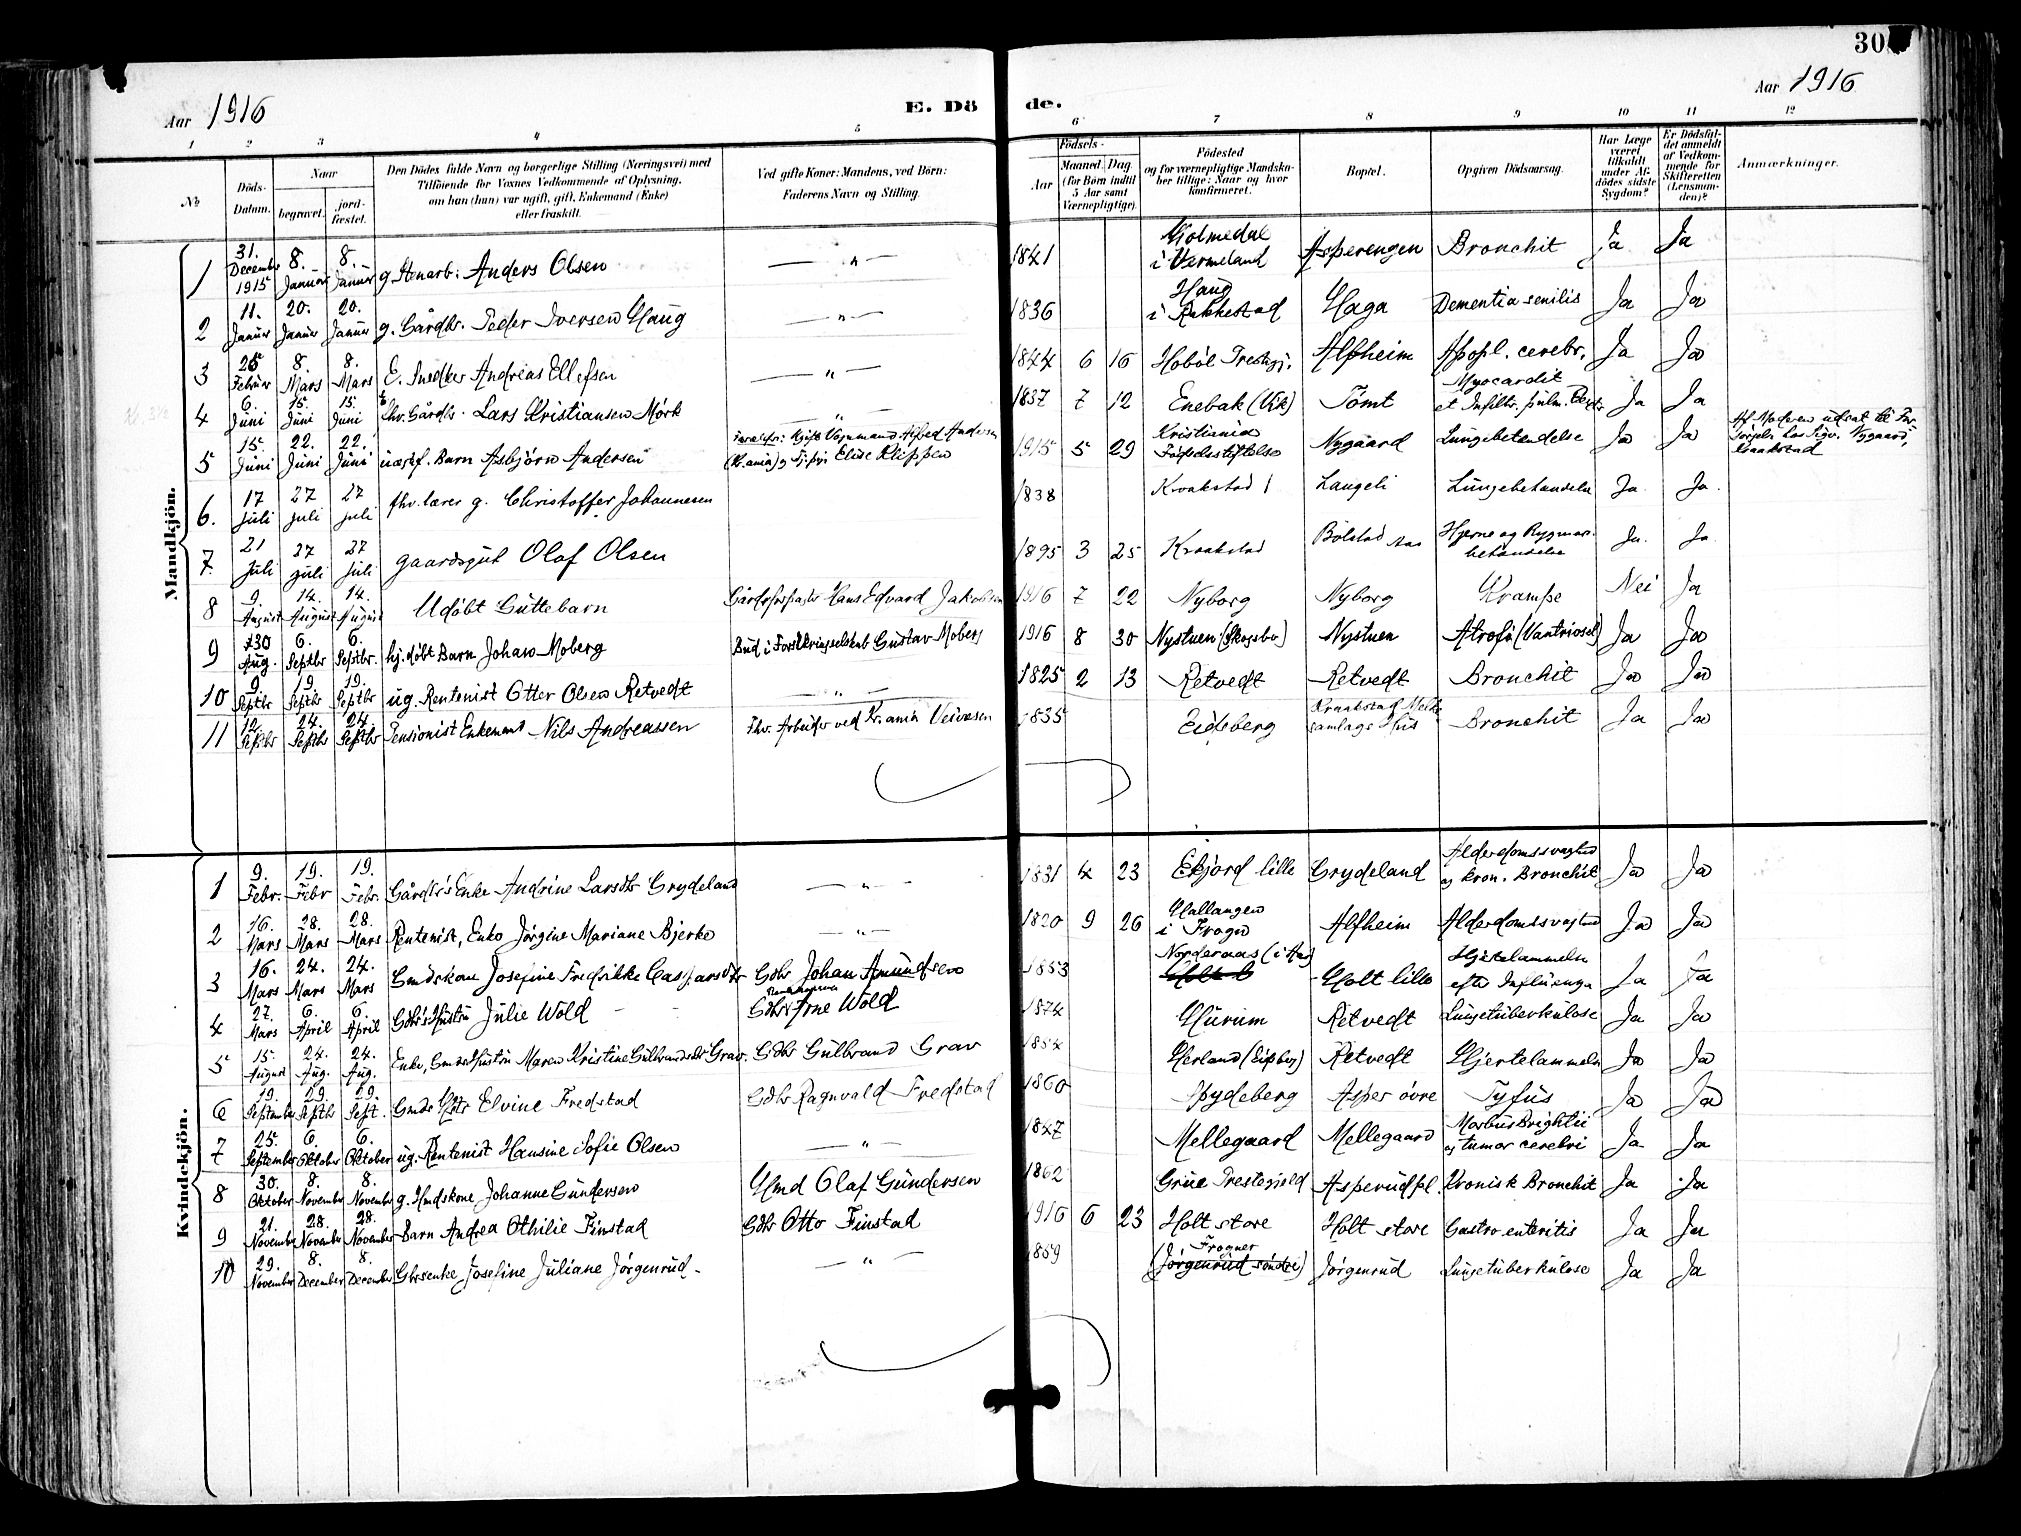 Aar 1916
E. Dö de.
Aar 1916
30
1 2 3 4 5 6 7 8 9 10 11 12
No
Döds-Datum.
Naar begravet. jord-fæstet.
Den Dödes fulde Navn og borgerlige Stilling (Næringsvei) med
Tilföiende for Voxnes Vedkommende af Oplysning,
om han (hun) var ugift, gift, Enkemand (Enke)
eller fraskilt.
Ved gifte Koner: Mandens, ved Börn:
Faderens Navn og Stilling.
Födsels-
Aar Maaned. Dag
(for Børn indtil 5 Aar samt Værnepligtige).
Födested
og for værnepligtige Mandska-
ber tillige: Naar og hvor
konfirmeret.
Bopæl.
Opgiven Dödsaarsag.
Har Læge været tilkaldt under Af-dödes sidste Sygdom?
Er Dödsfal-det anmeldt af Vedkom-mende for Skifteretten (Lensman-den)?
Anmærkninger.
Mandkjön.
1 31. December 1915 8. Januar 8. Januar g. Stenarb: Anders Olsen — " — 1841 i Vermeland Asperengen Bronchit Ja Ja
2 11. Januar 20. Januar 20. Januar g. Gårdbr. Peder Iversen Haug — " — 1836 Haug i Rakkestad Haga Dementia senilis Ja Ja
3 25 Februar 8. Mars 8. Mars E. Snedker Andreas Ellefsen — " — 1844 6 16 Hobøl Prestegj. Alfheim Apopl. cerebr. Ja Ja
4 6. Juni 15. Juni 15. Juni fhv. Gårdbr. Lars Kristiansen Mørk — " — 1837 7 12 Enebak (Vik) Tomt Myocardit et Infiltr. pulm. Ja Ja
5 15. Juni 22. Juni 22. Juni uægtf. Barn Asbjørn Andersen (Kr.ania) og Elise Klippen 1915 5 29 Kristiania Fødselsstiftelse Nygaard Lungebetændelse Ja Ja Af Moderen udsat til Nygaard, Kraakstad
6. 17 juli 27 juli 27 juli fhv. lærer g. Christoffer Johannesen 1838 Kraakstad Langeli Lungebetændelse Ja. Ja.
7. 21 juli 27 juli 27 juli gaardsgut Olaf Olsen 1895 3 25 Kraakstad Bølstad Aas Hjerne og Rygmarvbetændelse Ja. Ja.
8 9. August 14. August 14. August Udøbt Guttebarn Hans Edvard Jakobsen 1916 7 22 Nyborg Nyborg Krampe Nei Ja
9 30 Aug. 6. Septbr 6. Septbr. hj.døbt Barn Johan Moberg Bud i Forsikringsselskab Gustav Moberg 1916 8 30 Nystuen (Skogsbo) Nystuen Atrofi (Vantrivsel) Ja Ja
10 9 Septbr 19 Septbr 19. Septbr ug. Rentenist Otter Olsen Retvedt — " — 1825 2 13 Retvedt Retvedt Bronchit Ja Ja
11 12. Septbr 24. Septbr 24. Septbr Pensionist Enkemand Nils Andreassen Fhv. Arbeider ved Kr.ania Veivæsen 1835 Eidsberg Kraakstad samlags Hus Bronchit Ja Ja
Kvindekjön.
1 9. Febr. 19. Febr 19. Febr. Gårdbr's Enke Andrine Larsdtr Grydeland — " — 1831 4 23 Ekjord lille Grydeland Alderdomssvaghed og kron. Bronchit Ja Ja
2 16. Mars 28. Mars 28. Mars Rentenist, Enke Jørgine Mariane Bjerke — " — 1820 9 26 Hallangen i Frogn Alfheim Alderdomssvaghed Ja Ja
3 16. Mars 24. Mars 24. Mars Gmdskone Josefine Fredrikke Caspersdtr Gdbr Johan Amundsen 1853 Norderaas (i Aas) Holt lille Hjertelammelse efter Influenza Ja Ja
4 27. Mars 6. April 6. April Gdbr's Hustru Julie Wold Gdbr Arne Wold 1874 Hurum Retvedt Lungetuberkulose Ja Ja
5 15. August 24. Aug. 24. Aug. Enke, Gmds Hustru Maren Kristine Gulbrandsdtr Grav. Gdbr Gulbrand Grav 1854 Herland (Eidsberg) Retvedt Hjertelammelse Ja Ja
6 19. September 29. Septbr 29. Sept. Gmds Hstr Elvine Fredstad Gdbr Ragnvald Fredstad 1860 Spydeberg Asper øvre Tyfus Ja Ja
7 25. September 6. Oktober 6. Oktober ug. Rentenist Hansine Sofie Olsen — " — 1847 Mellegaard Mellegaard Morbus Brightii og tumor cerebri Ja Ja
8 30. Oktober 8. November 8. November g. Hmdskone Johanne Gundersen Hmd Olaf Gundersen 1862 Grue Prestegjeld Asperudpl. Kronisk Bronchit Ja Ja
9 21. November 28. November 28. November Barn Andrea Othilie Finstad Gdbr Otto Finstad 1916 6 23 Holt store Holt store Gastro enteritis Ja Ja
10 29. November 8. December 8. December Gbrsenke Josefine Juliane Jørgenrud. — " — 1859 Frogner (Jørgenrud søndre) Jørgenrud Lungetuberkulose Ja Ja